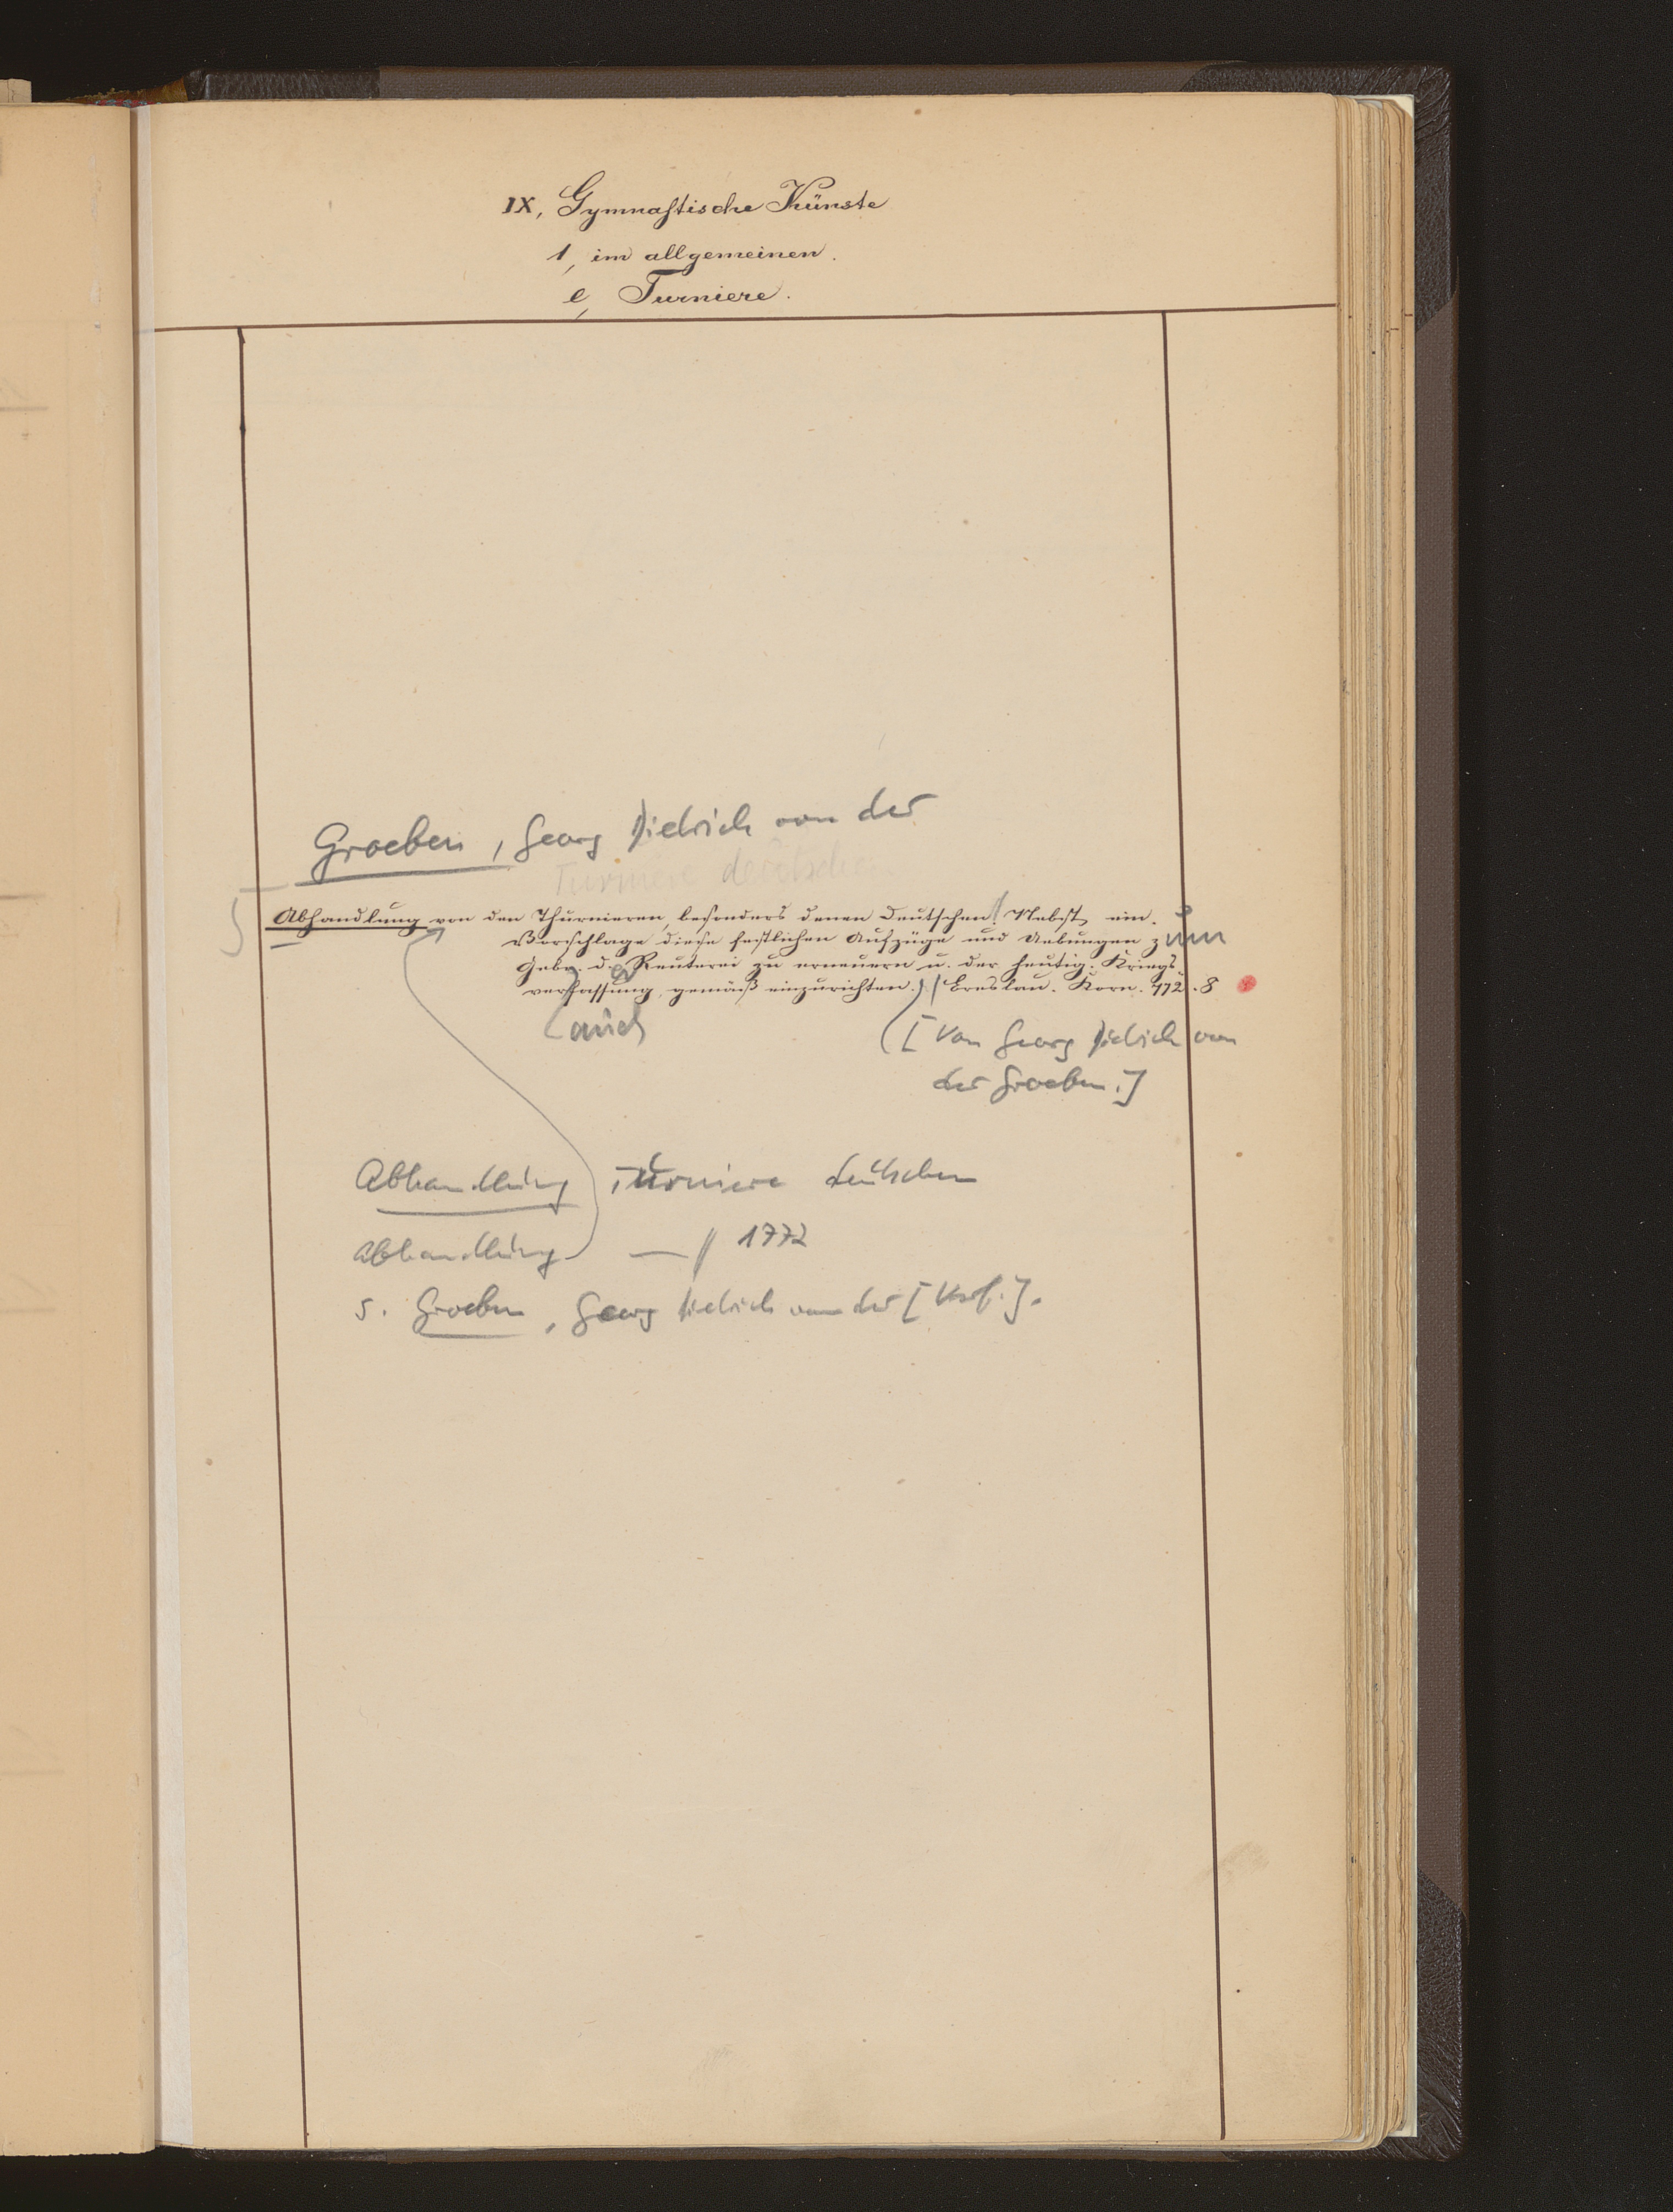 IX, Gymnastische Künste
1, im allgemeinen.
e, Turniere.
Groeben, Georg Dietrich von der
Turniere deutschen
Abhandlung von den Thurnieren, besonders denen Deutschen // Nebst ein.
Vorschlage diese festlichen Aufzüge und Uebungen zum
Gebr. d. Reuterei zu erneuern u. der heutig. Kriegs
verfassung, gemäß einzurichten.) / Breslau. Korn. 772. 8
[Von Georg Dietrich von
der Groeben.]
Abhandlung Turniere deutschen
Abhandlung — // 1772
s. Groeben, Georg Dietrich von der [Verf.].